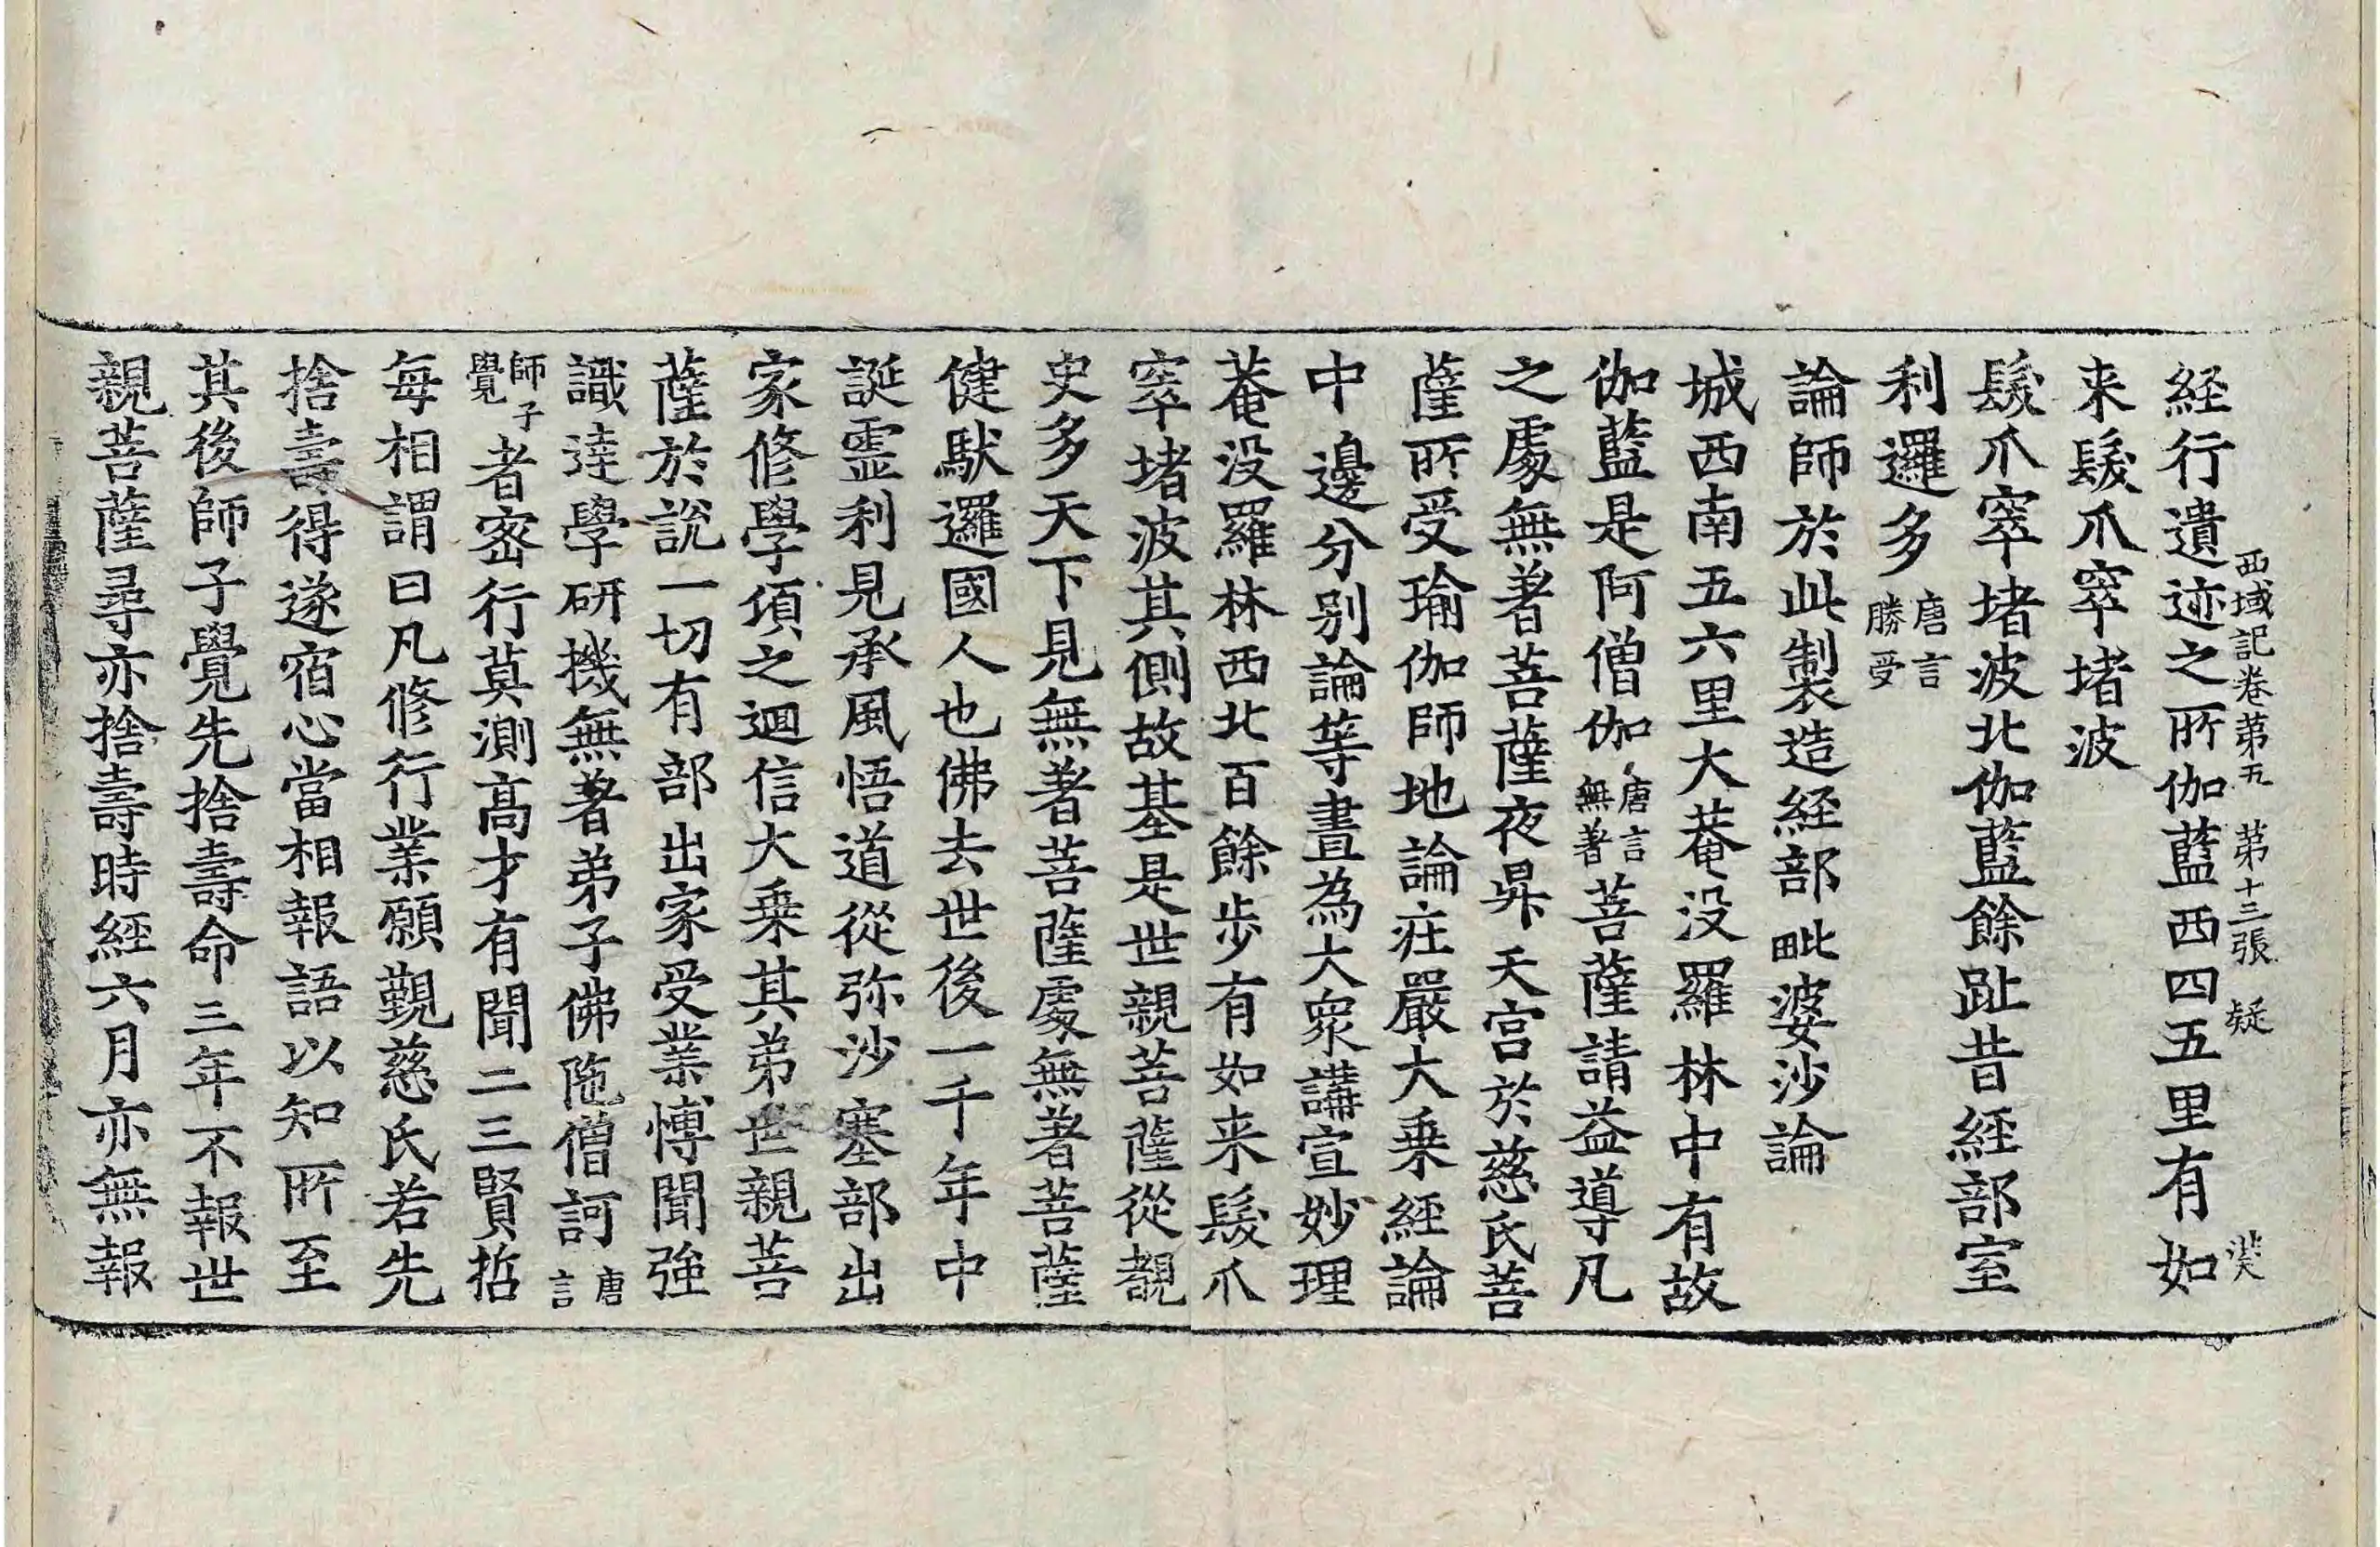 西域記卷第五 第十三張 疑
経行遺迹之所伽藍西四五里有如
来髮爪窣堵波
髮爪窣堵波北伽藍餘趾昔経部室
利邏多唐言勝受
論師於此製造経部毗婆沙論
城西南五六里大菴没羅林中有故
伽藍是阿僧伽唐言無著菩薩請益導凡
之處無著菩薩夜昇天宮於慈氏菩
薩所受瑜伽師地論莊嚴大乗経論
中邊分别論等晝為大衆講宣妙理
菴没羅林西北百餘歩有如来髮爪
窣堵波其側故基是世親菩薩從覩
史多天下見無著菩薩處無著菩薩
健馱邏國人也佛去世後一千年中
誕霊利見承風悟道從弥沙塞部出
家修學頃之迴信大乗其弟世親菩
薩於説一切有部出家受業博聞強
識達學研機無著弟子佛陁僧訶唐言
師子覺者宻行莫測髙才有聞二三賢哲
每相謂曰凡修行業願覲慈氏若先
捨壽得遂宿心當相報語以知所至
其後師子覺先捨壽命三年不報世
親菩薩尋亦捨壽時經六月亦無報